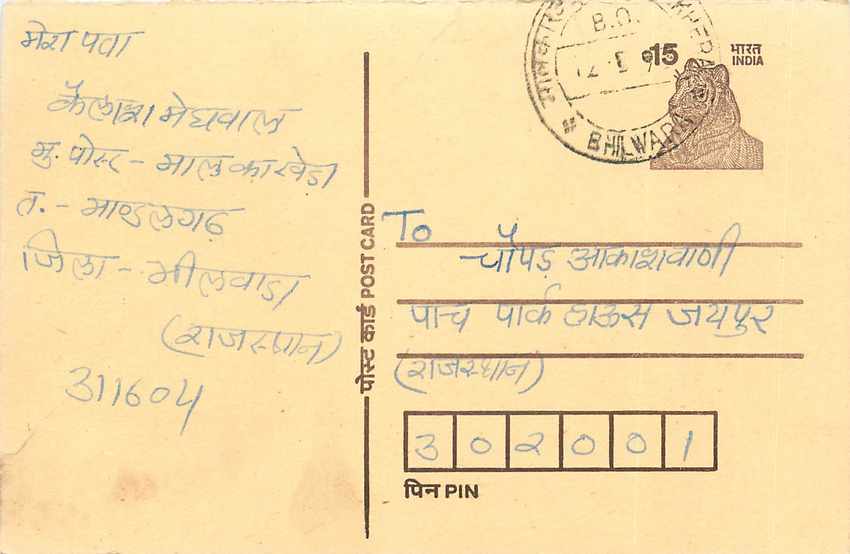 मेरा पता
कैलाश मेघवाल
मु. पोस्ट - मालु का खेडा
त. - माण्डलगढ़
जिला - भीलवाडा
(राजस्थान)
311604
पोस्ट कार्ड POST CARD
B.O.
BHILWARA
15
भारत
INDIA
To
चौपड़ आकाशवाणी
पाच पार्क हाऊस जयपुर
(राजस्थान)
302001
पिन PIN